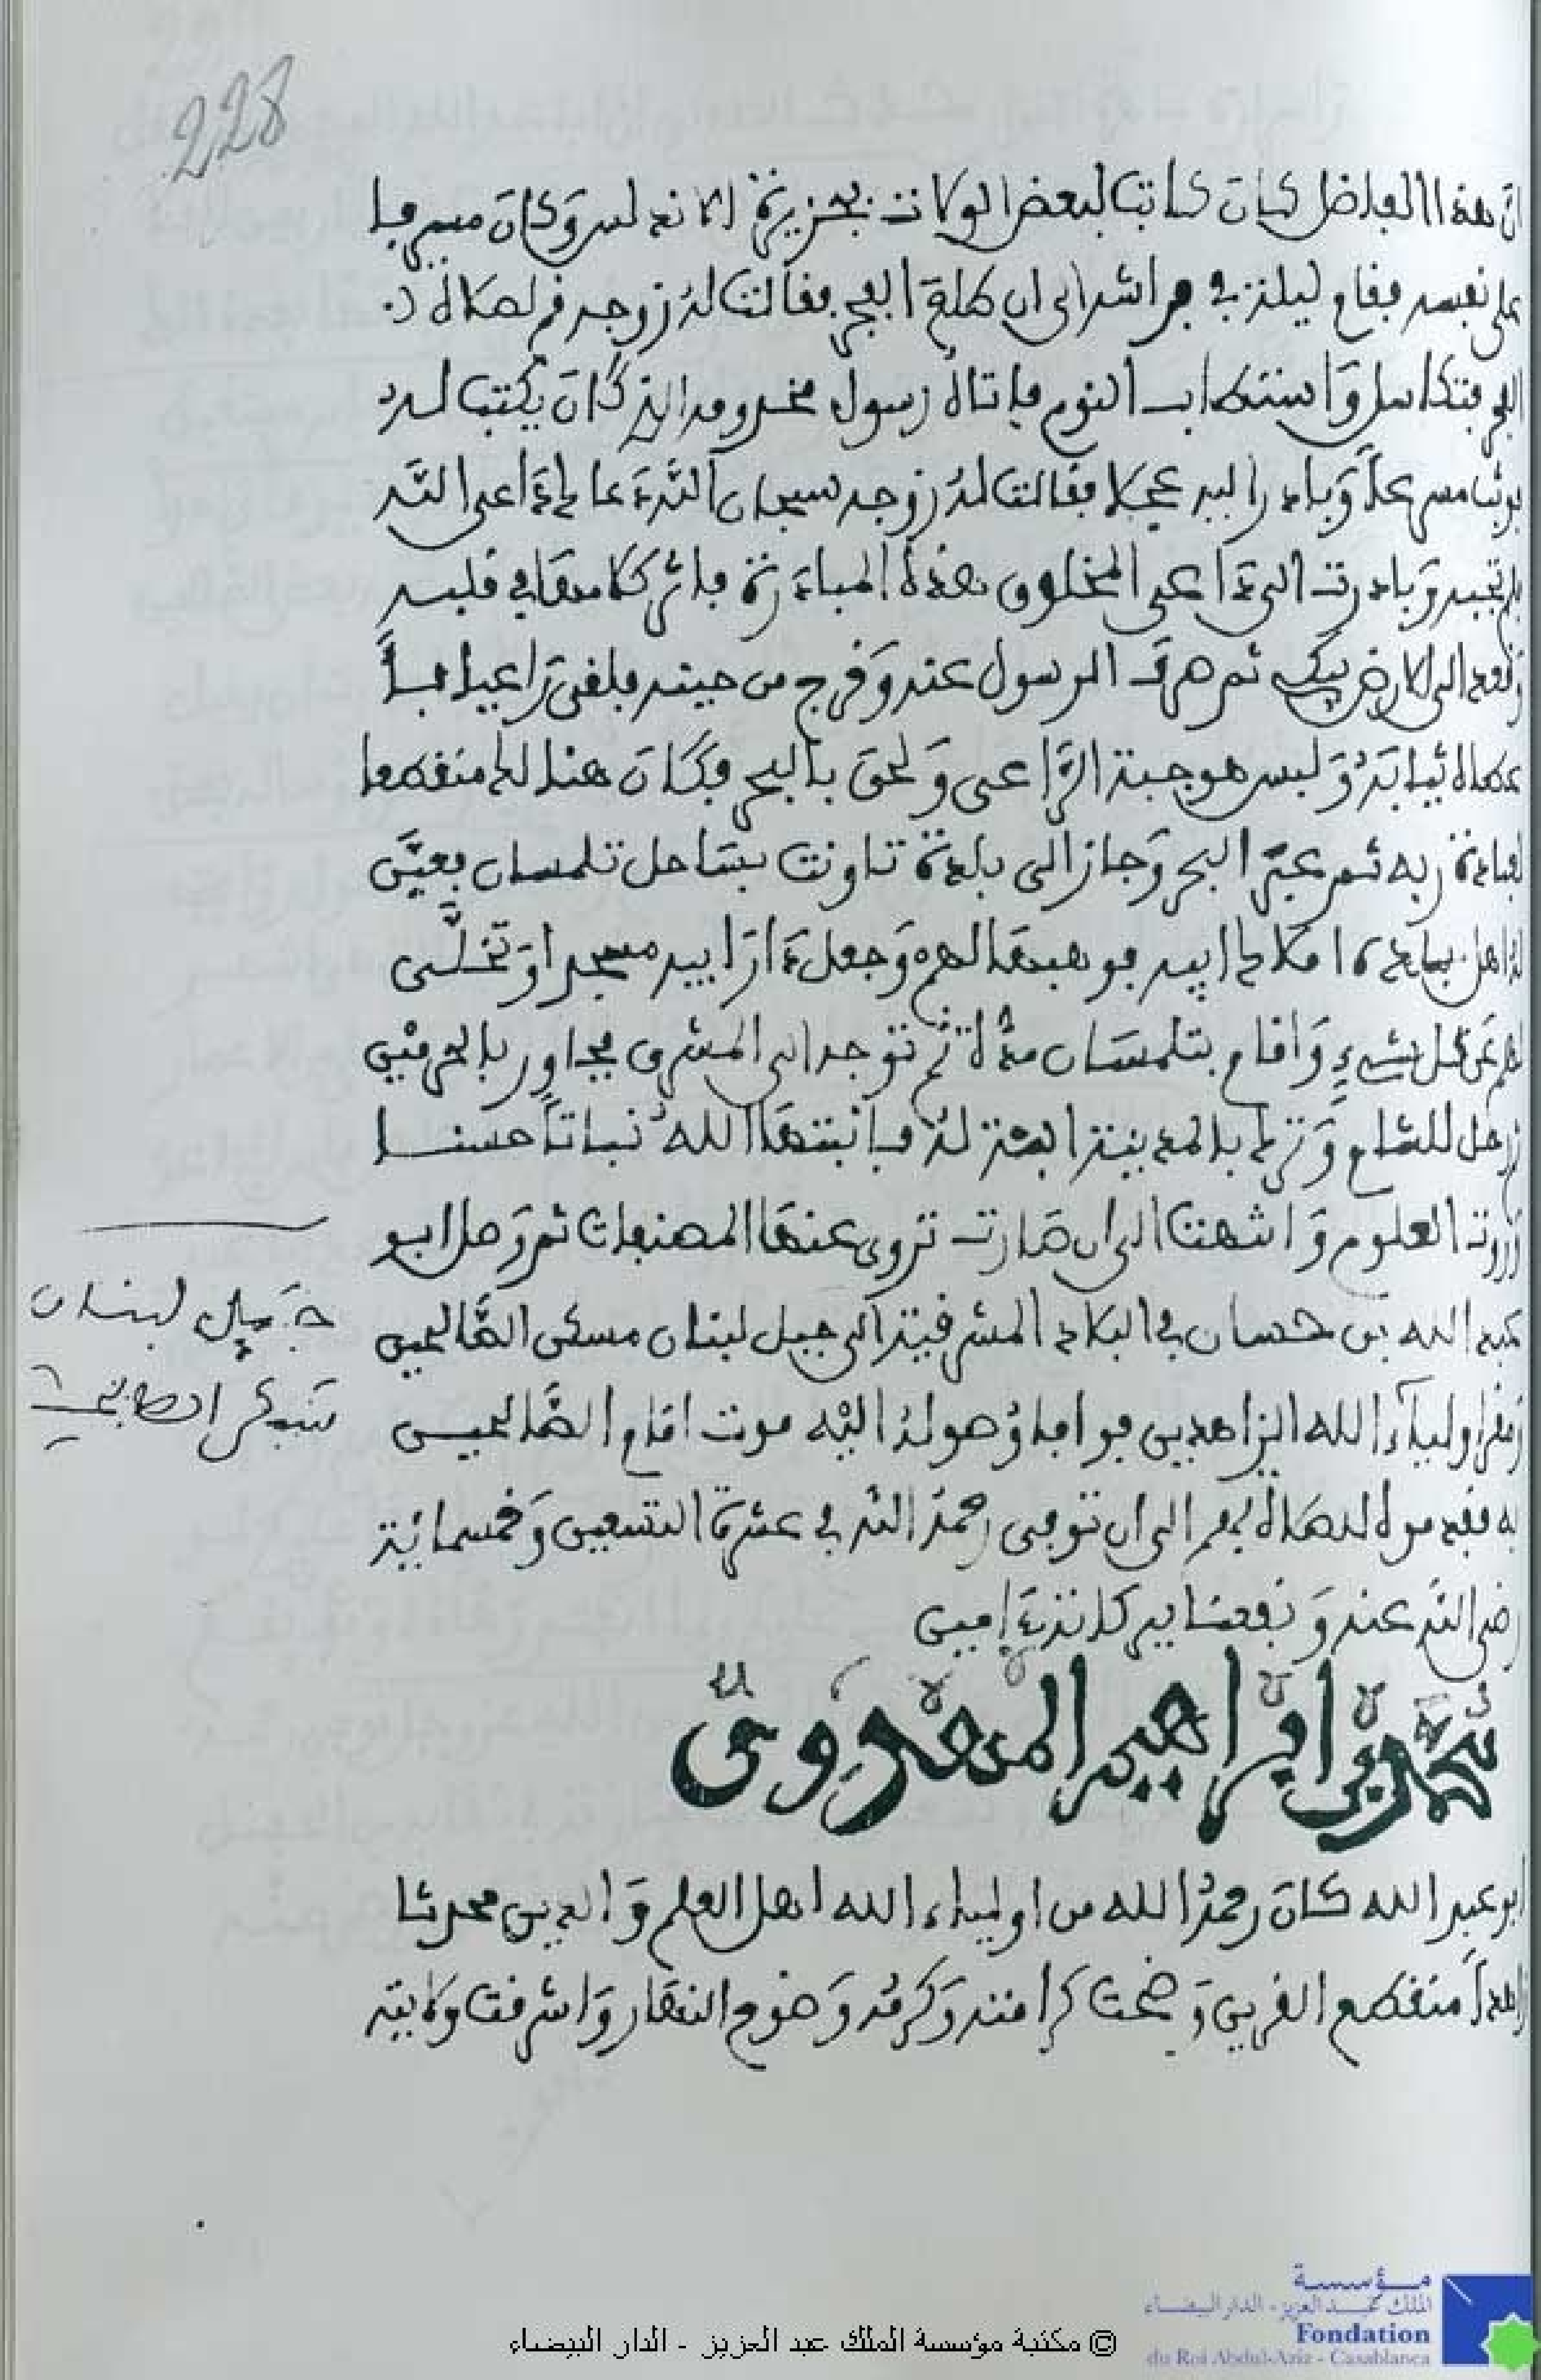 228
ان هذا الفاضل كان كاتبا لبعض الولات بجزيرة الاندلس وكان مسرفا
على نفسه فقام ليلة في فراشه الى ان طلع الفجر فقالت له زوجه قم لصلاة
الفجر فتكاسل واستطاب النوم فاتاه رسول مخدومه الذي كان يكتب له
فوثب مسرعا وبادر اليه عجلا فقالت له زوجه سبحان الله دعاك داعى الله
فلم تجبه وبادرت الى داعى المخلوق هذه المبادرة فاثر كلامها في قلبه
وقعد الى الارض يبكي ثم صرف الرسول عنه وخرج من حينه فلقى راعيا
فاعطاه ثيابه ولبس هو جبة الراعى ولحق بالبحر فكان هنالك منقطعا
لعبادة ربه ثم عبر البحر وجاز الى بلدة تاونت بساحل تلمسان فعين
له اهل بلده املاك ابيه فوهبها لهم وجعل دار ابيه مسجدا وتخلى
لهم عن كل شيء واقام بتلمسان مدة ثم توجه الى المشرق فجاور بالحرمين
ثم رحل للشام وترك بالمدينة ابنة له فانبتها الله نباتا حسنا
وروت العلوم واشتهنت الى ان صارت تروى عنها المصنفات ثم رحل ابو
عبد الله بن حسان في البلاد المشرقية الى جبل لبنان مسكن الصالحين
جبل لبنان
ومقر اولياء الله الزاهدين فوافا وصوله اليه موت امام الصالحين
مسكن الصالحين
به فقدموه للصلاة بهم الى ان توفى رحمه الله في عشرة التسعين وخمسمائة
رضى الله عنه ونفعنا ببركاته ءامين
محمد بن ابراهيم المهدوى
ابو عبد الله كان رحمه الله من اولياء الله اهل العلم والدين محدثا
زاهدا منقطع القرين وضحت كرامته وكرمه وضوح النهار واشرقت ولايته
مؤسسة
الملك عبد العزيز - الدار البيضاء
Fondation
du Roi Abdul-Aziz - Casablanca
© مكتبة مؤسسة الملك عبد العزيز - الدار البيضاء